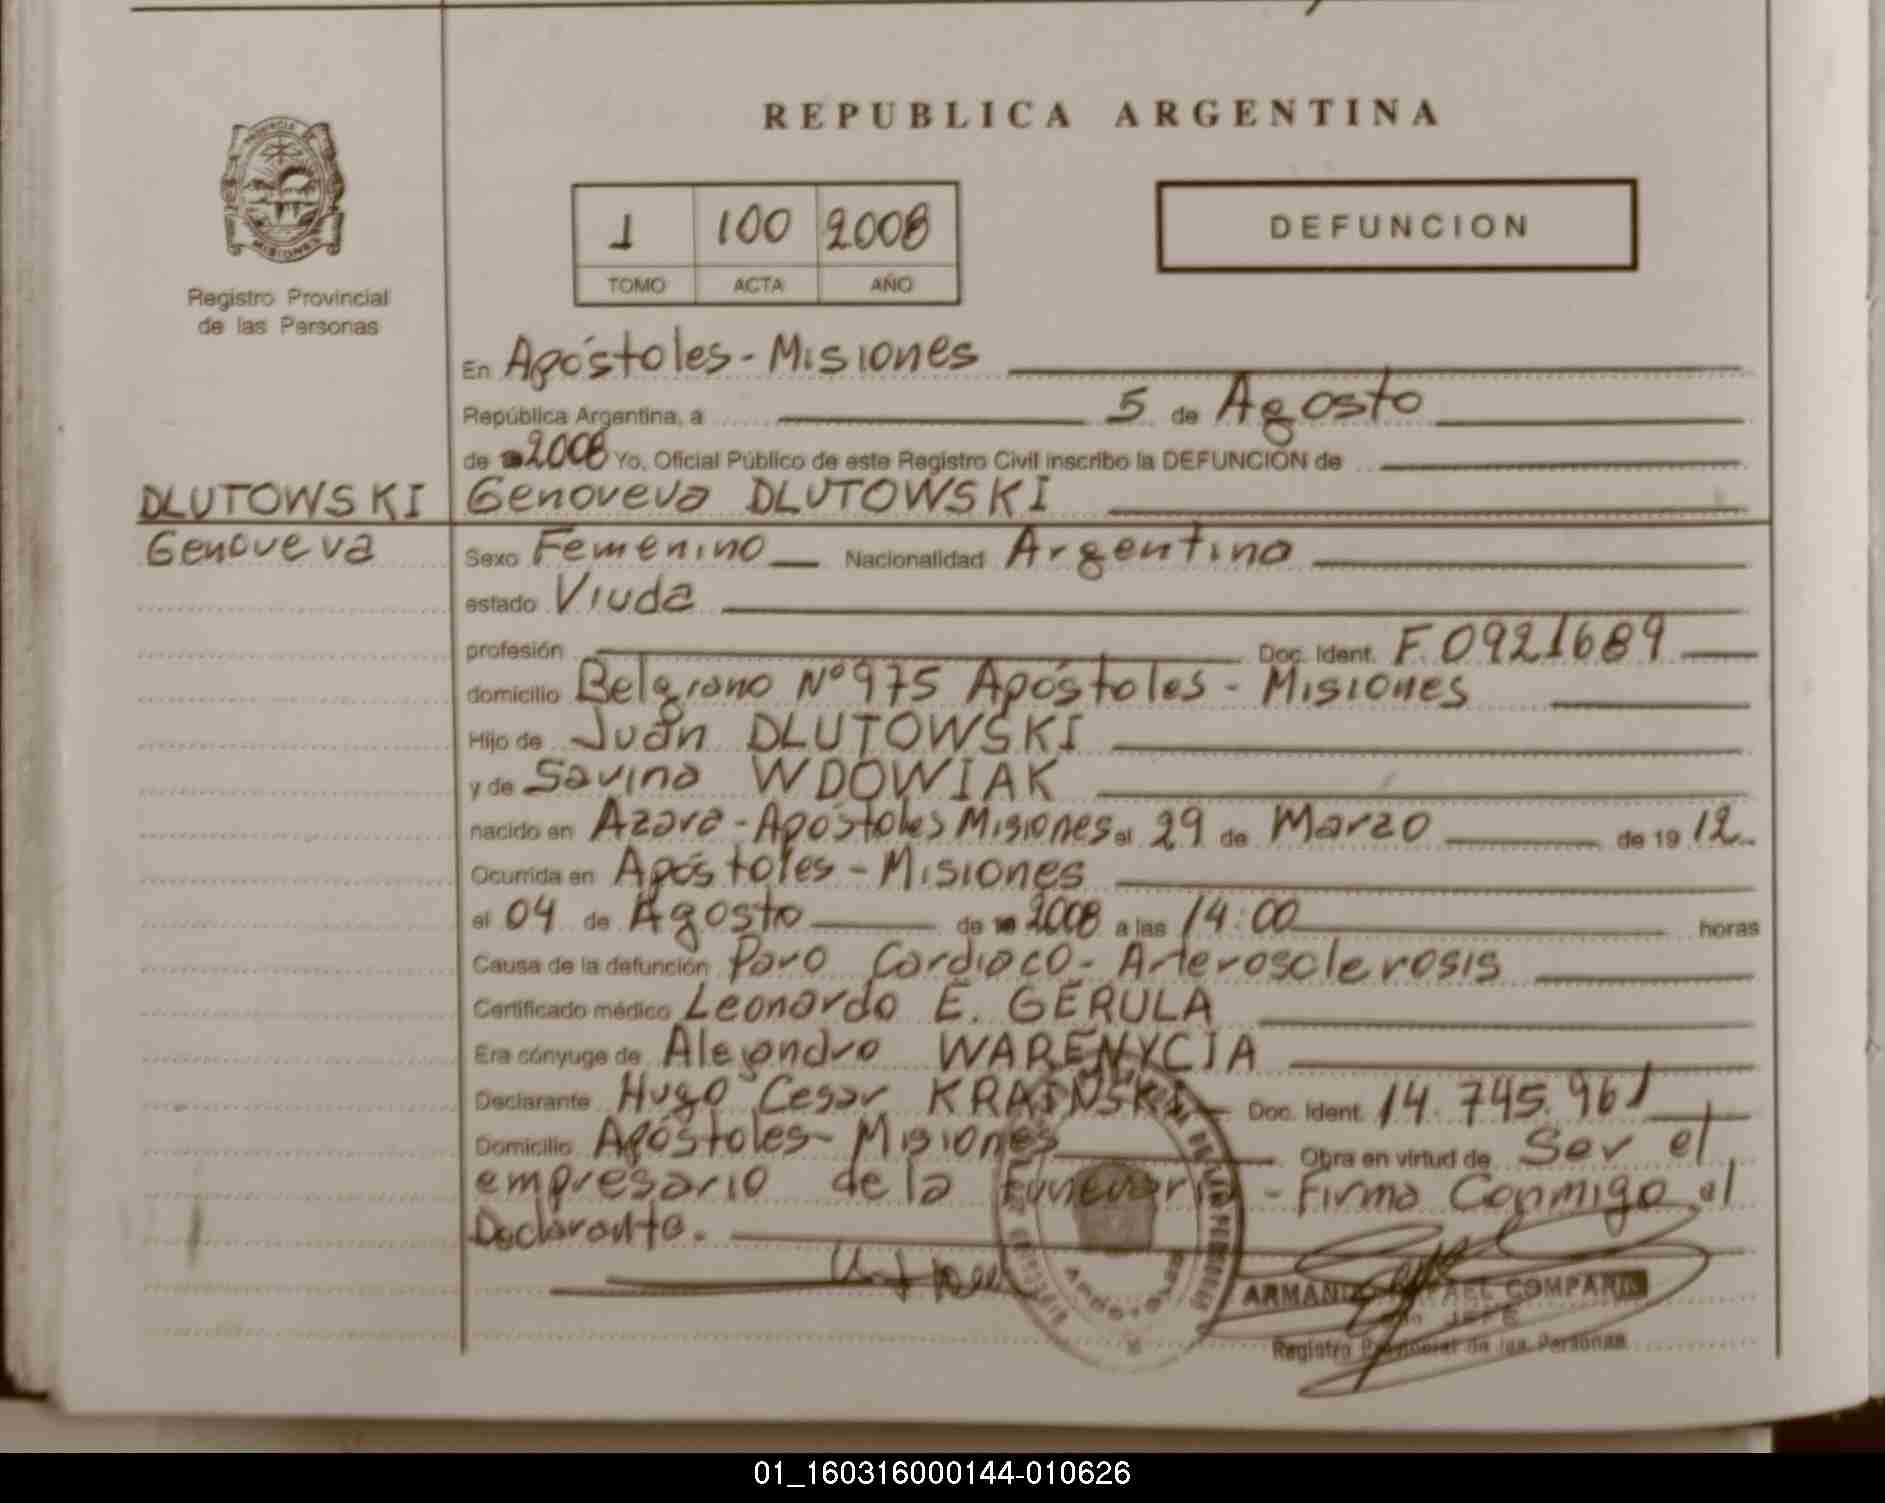 REPUBLICA ARGENTINA
MISIONES
Registro Provincial
de las Personas
1 100 2008
TOMO ACTA AÑO
DEFUNCION
En Apóstoles - Misiones
República Argentina, a 5 de Agosto
de 2008 Yo, Oficial Público de este Registro Civil inscribo la DEFUNCION de
DLUTOWSKI Genoveva DLUTOWSKI
Genoveva Sexo Femenino Nacionalidad Argentina
estado Viuda
profesión Doc. Ident. F. 0921689
domicilio Belgrano Nº 975 Apóstoles - Misiones
Hijo de Juan DLUTOWSKI
y de Savina WDOWIAK
nacido en Azara - Apóstoles Misiones el 29 de Marzo de 19 12
Ocurrida en Apóstoles - Misiones
el 04 de Agosto de 2008 a las 14:00 horas
Causa de la defunción Paro Cardiaco - Arterosclerosis
Certificado médico Leonardo E. GERULA
Era cónyuge de Alejandro WARENYCIA
Declarante Hugo Cesar KRAINSKI Doc. Ident. 14.745.961
Domicilio Apóstoles - Misiones Obra en virtud de Ser el
empresario de la Funeraria - Firma Conmigo el
Declarante.
COMPARIN
JEFE
Registro Provincial de las Personas
01_160316000144-010626